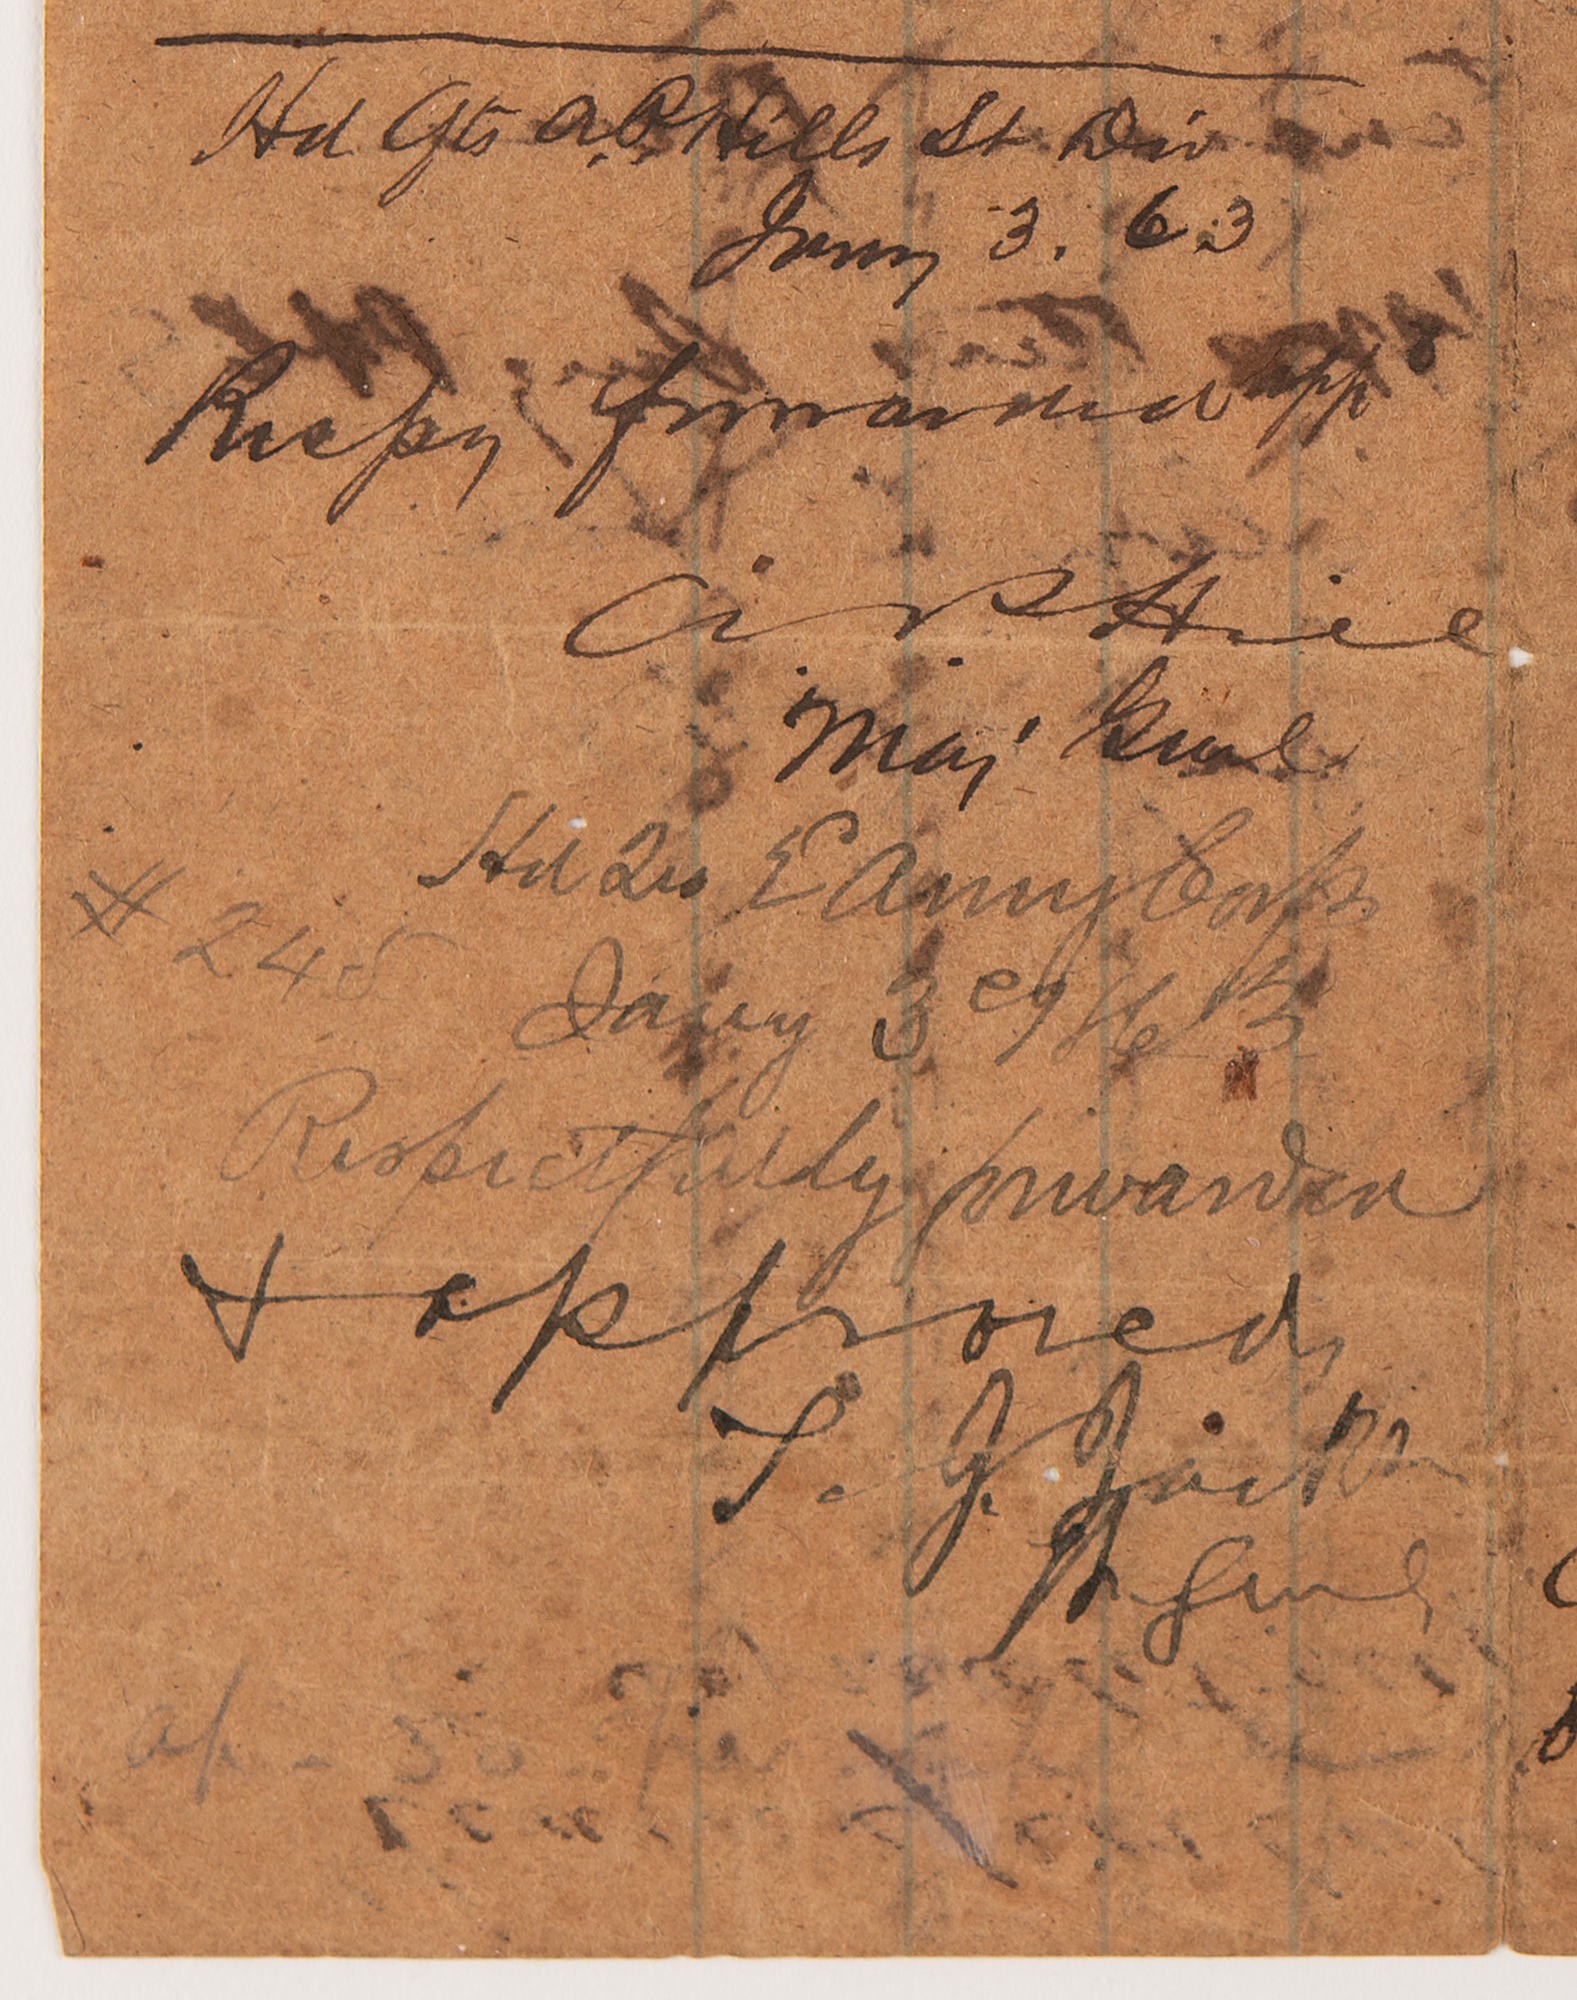 Hd Qts A.P. Hills Lt Div
Jany 3. 63
Respy forwarded app^d
A P Hill
Maj Genl
Hd Qrs 2 Army Corps
# 248
Jany 3^d/63
Respectfully forwarded
& approved,
T. J. Jackson
Lt Genl